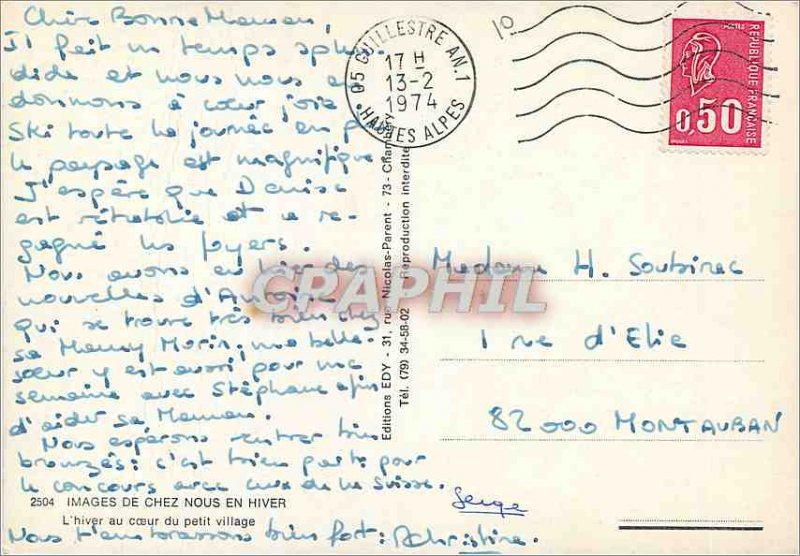 Chère Bonne Maman,
Il fait un temps splen-
dide et nous nous a
donnons à cœur joie
Ski toute la journée en
le paysage est magnifique
J'espère que Denise
est rétablie et a re-
gagné les foyers.
Nous avons eu hier des
nouvelles
qui se trouve très bien chez
sa Mamy Morin; ma belle-
sœur y est aussi pour une
semaine avec Stéphane afin
d'aider sa Maman.
Nous espérons rentrer bien
bronzés: c'est bien parti pour
le concours avec ceux de la Suisse.
2504 IMAGES DE CHEZ NOUS EN HIVER
L'hiver au cœur du petit village
Nous t'embrassons bien fort: Christine.
Serge
Editions EDY - 31, rue Nicolas-Parent - 73 - Chambéry
Tél. (79) 34-58-02 Reproduction interdite
CPAPHIL
05 GUILLESTRE AN.1
17 H
13-2
1974
HAUTES ALPES
10
POSTES
REPUBLIQUE FRANÇAISE
0,50
Madame H. Soubirac
1 rue d'Elie
82000 MONTAUBAN